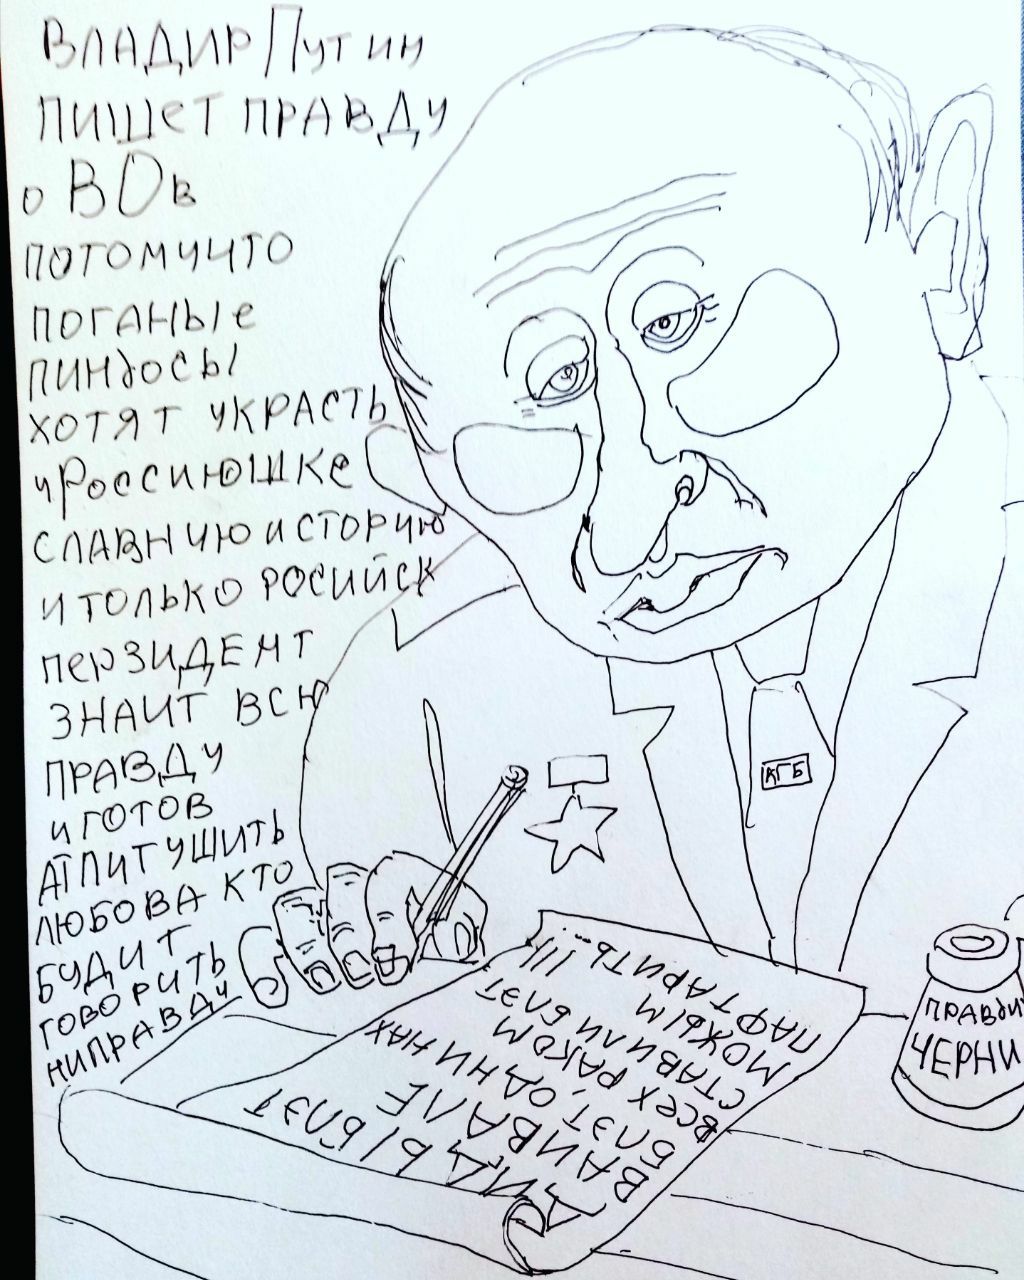 ВЛАДИР ПУТИН
ПИШЕТ ПРАВДУ
О ВОВ
ПОТОМУЧТО
ПОГАНЫЕ
ПИНДОСЫ
ХОТЯТ УКРАСТЬ
УРОССИЮШКЕ
СЛАВНУЮ ИСТОРИЮ
И ТОЛЬКО РОСИЙСК
ПЕРЗИДЕНТ
ЗНАИТ ВСЮ
ПРАВДУ
И ГОТОВ
АТПИТУШИТЬ
ЛЮБОВА КТО
БУДИТ
ГОВОРИТЬ
НИПРАВДУ
КГБ
ДИДЫ БЛЭТ
ВАИВАЛЕ
БЛЭТ, ОДНИ НАХ
ВСЕХ РАКОМ
СТАВИЛИ БЛЭТ
МОЖЫМ
ПАФТАРИТЬ !!!...
ПРАВДИ
ЧЕРНИ